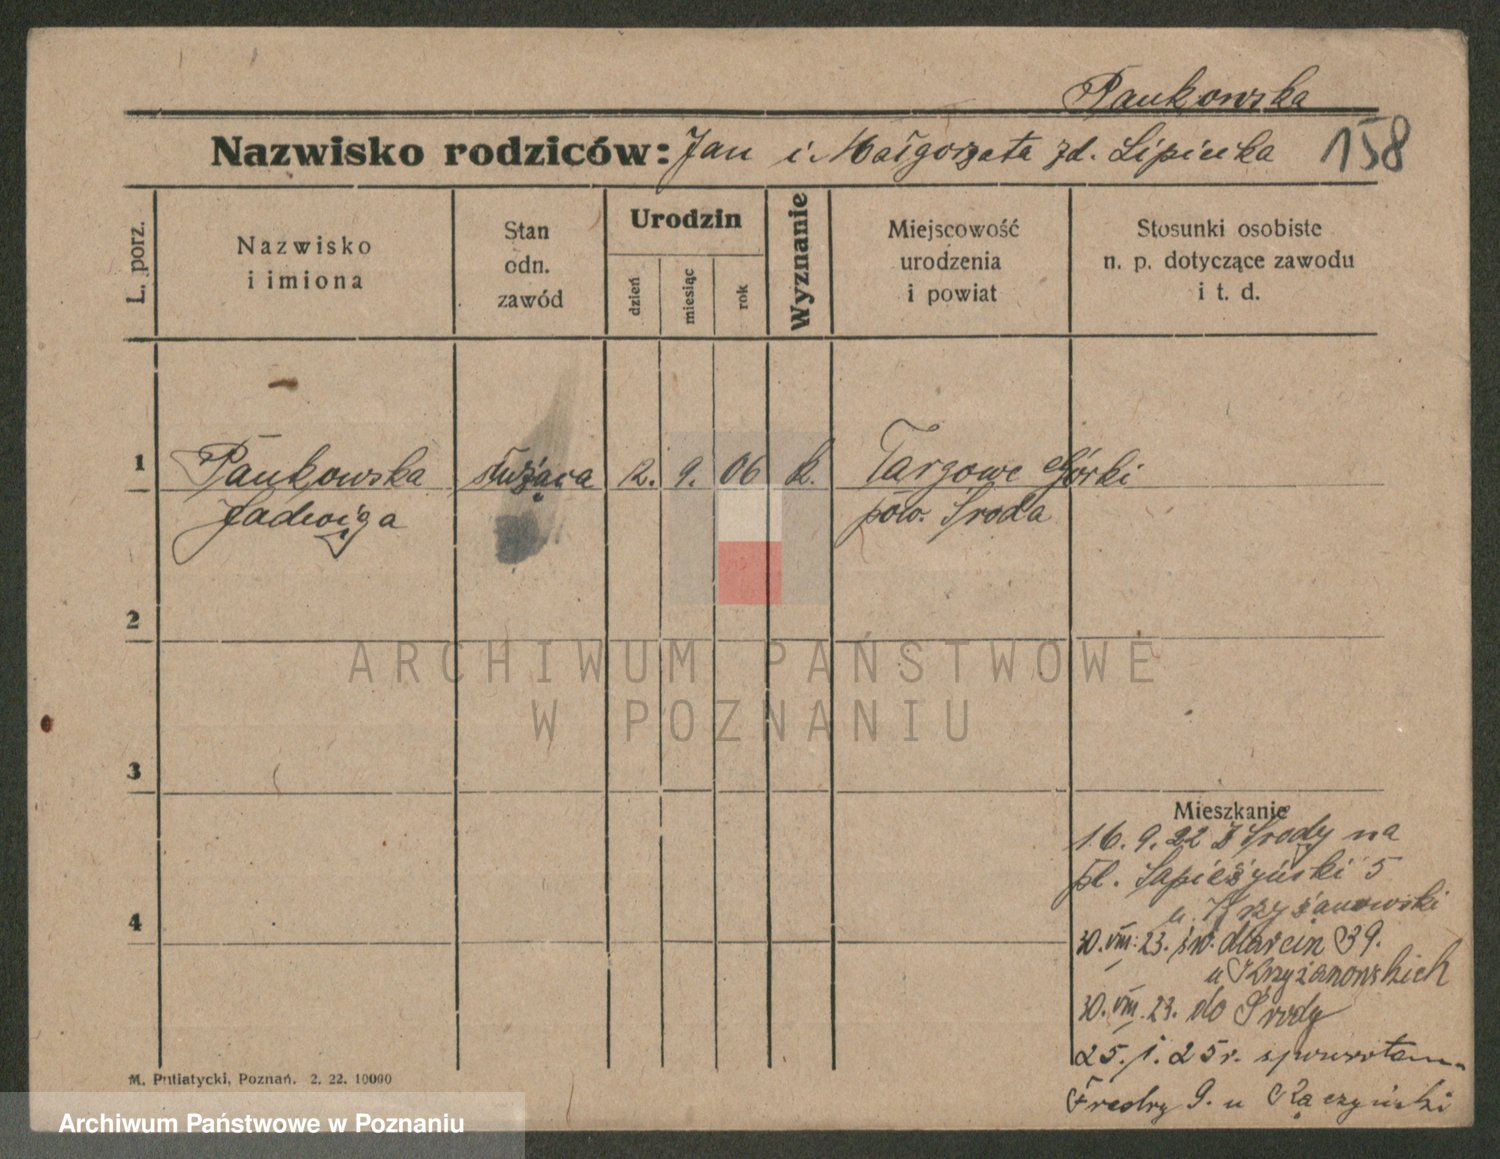 Pankowska
Nazwisko rodziców: Jan i Małgorzata zd. Lipicka
158
L. porz.
Nazwisko
i imiona
Stan
odn.
zawód
Urodzin
dzień
miesiąc
rok
Wyznanie
Miejscowość
urodzenia
i powiat
Stosunki osobiste
n. p. dotyczące zawodu
i t. d.
1
Pankowska służąca 2. 9. 06 k. Targowe Górki
Jadwiga pow. Środa
2
3
4
Mieszkanie
16. 9. 22 z Środy na
pl. Sapieżyński 5
u. Krzyżanowski
30. VIII. 23. św. Marcin 39.
u Krzyżanowskich
30. VIII. 23. do Środy
25. 1. 25 r. spowrotem
Fredry 9. u Kączyński
M. Putiatycki, Poznań. 2. 22. 10000
ARCHIWUM PAŃSTWOWE
W POZNANIU
Archiwum Państwowe w Poznaniu